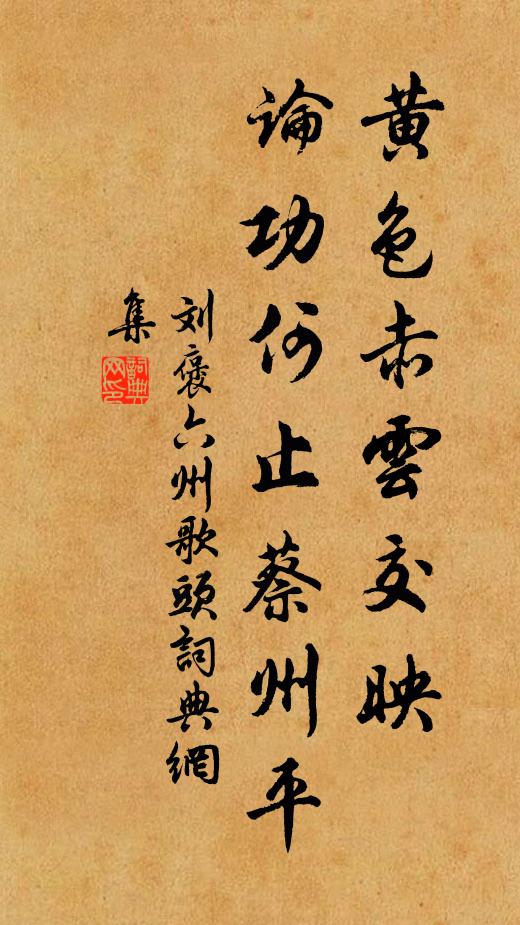 黄色赤雲交映
論功何止蔡州平
刘褒六州歌頭詞典網
集
詞典
网印